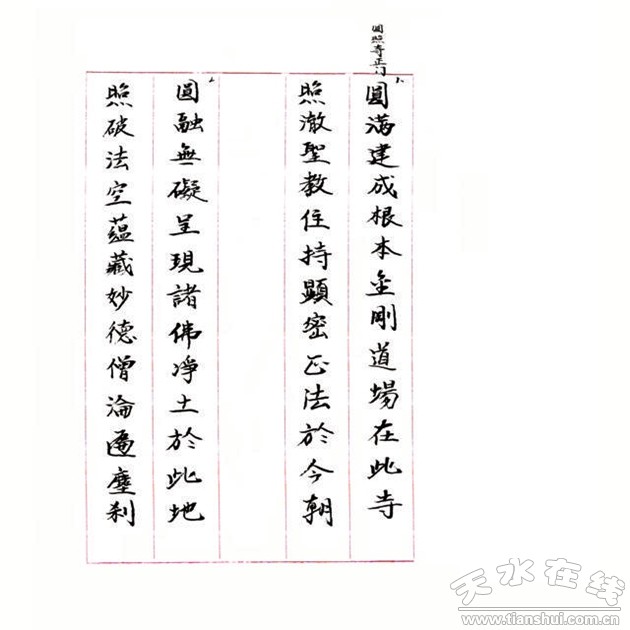 圆照寺正门
1.
圓满建成根本金剛道場在此寺
照澈聖教住持顯密正法於今朝
2
圓融無礙呈現諸佛净土於此地
照破法空蘊藏妙德僧淪遍塵刹
天水在线
www.tianshui.com.cn